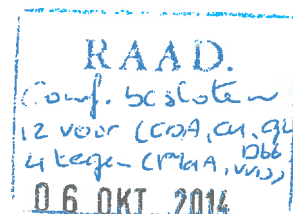 RAAD.
Conf. besloten
12 voor (CDA, CU, GL
D66
4 tegen (PvdA, VVD)
06 OKT. 2014